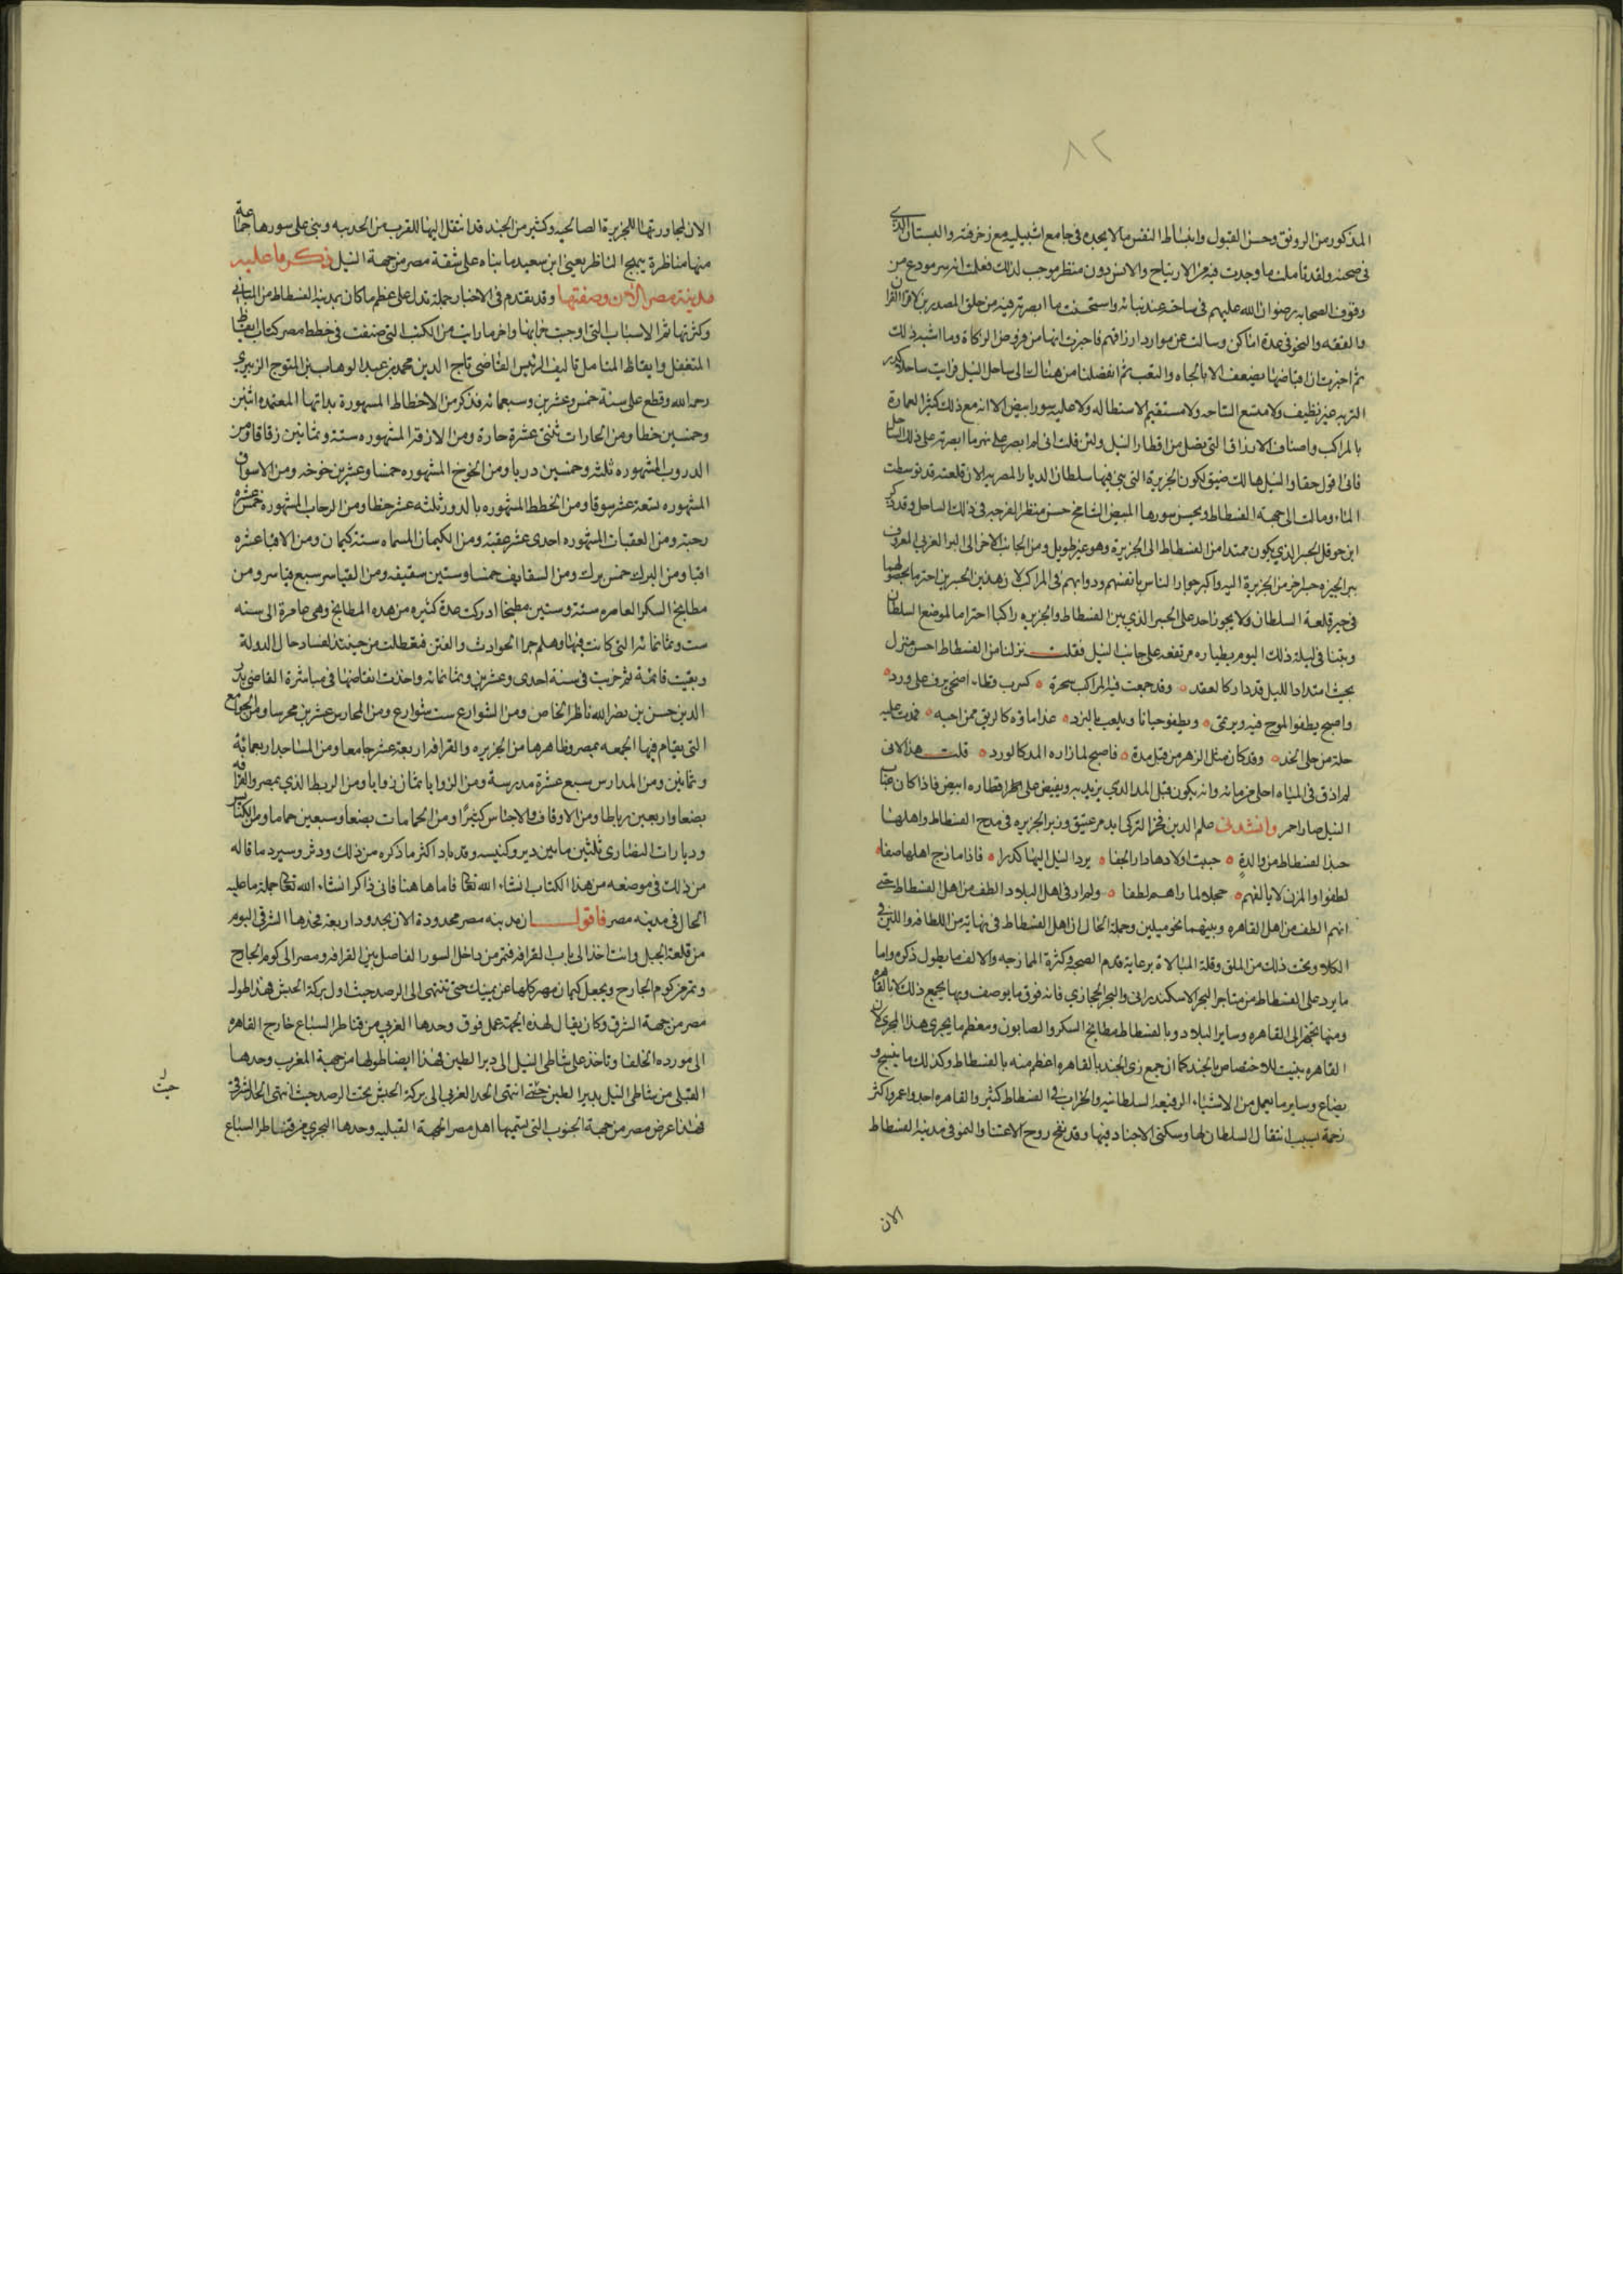 ٨٢
المذكور من الرونق وحسن القبول وانبساط النفس ما لا يجده فى جامع اشبيليه مع زخرفته والبستان الذى
فى صحنه ولقد تاملت ما وجدت فيه من الارتياح والانس دون منظر موجب لذلك فعلمت انه سر مودع من
وقوف الصحابه رضوان الله عليهم فى ساحته عند بنائه واستحسنت ما ابصرته فيه من حلق المصدرين لاقرا القران
والفقه والنحو فى عدة اماكن وسالت عن موارد ارزاقهم فاخبرت انها من فروض الزكاة وما اشبه ذلك
ثم اخبرت ان اقتضاها يصعب الا بالجاه والتعب ثم انفصلنا من هنالك الى ساحل النيل فرايت ساحلا كدر
التربه غير نظيف ولا متسع الساحه ولا مستقيم الاستطاله ولا عليه سور ابيض الا انه مع ذلك كثير العمارة
بالمراكب واصناف الارزاق التى تصل من اقطار النيل ولئن قلت انى لم ابصر على نهر ما ابصرته على ذلك الساحل
فانى اقول حقا والنيل هنالك ضيق لكون الجزيرة التى بنى فيها سلطان الديار المصريه الان قلعته قد توسطت
الماء ومالت الى جهة الفسطاط وبحسن سورها المبيض الشامخ حسن منظر الفرجه فى ذلك الساحل وقد ذكر
ابن حوقل الجسر الذى يكون ممتدا من الفسطاط الى الجزيرة وهو غير طويل ومن الجانب الاخر الى البر الغربى المعروف
ببر الجيزه جسر اخر من الجزيرة اليه واكثر جواز الناس بانفسهم ودوابهم فى المراكب لان هذين الجسرين احترما بحصولهما
فى حيز قلعة السلطان ولا يجوز احد على الجسر الذى بين الفسطاط والجزيره راكبا احتراما لموضع السلطان
وبتنا فى ليلة ذلك اليوم بطياره مرتفعه على جانب النيل فقلت نزلنا من الفسطاط احسن منزل
بحيث امتداد النيل قد دار كالعقد ٥ وقد جمعت فيه المراكب سحرة ٥ كسرب قطاء اضحى يرف على ورد ٥
واصبح يطفو الموج فيه ويرتمى ٥ ويطفو حبانا ويلعب بالنرد ٥ غدا ماؤه كالريق ممن احبه ٥ فمدت عليه
حلة من حلى الخد ٥ وقد كان مثل الزهر من قبل مدة ٥ فاصبح لما زاره المد كالورد ٥ قلت هذا لانى
لم اذق فى المياه احلى من مائه وانه يكون قبل المد الذى يزيد به ويفيض على اقطاره ابيض فاذا كان عباب
النيل صار احمر وانشدنى علم الدين فخر الترك ايدمر عتيق وزير الجزيره فى مدح الفسطاط واهلها
حبذا الفسطاط من والدة ٥ جنبت اولادها دار الجفا ٥ يرد النيل اليها كدرا ٥ فاذا مازج اهلها صفا ٥
لطفوا والمزن لا يالفهم ٥ خجلا لما راهم لطفا ٥ ولم ار فى اهل البلاد الطف من اهل الفسطاط حتى
انهم الطف من اهل القاهره وبينهما نحو ميلين وجملة الحال ان اهل الفسطاط فى نهاية من اللطافه واللين فى
الكلام وتحت ذلك من الملق وقلة المبالاة برعاية قدم الصحبة وكثرة الممازجه والالف ما يطول ذكره واما
ما يرد على الفسطاط من متاجر البحر الاسكندرانى والبحر الحجازى فانه فوق ما يوصف وبها يجمع ذلك لا بالقاهره
ومنها يجهز الى القاهره وساير البلاد وبالفسطاط مطابخ السكر والصابون ومعظم ما يجرى هذا المجرى لان
القاهره بنيت للاختصاص بالجند كما ان جميع زى الجند بالقاهره اعظم منه بالفسطاط وكذلك ما ينسج و
يصاغ وساير ما يعمل من الاشياء الرفيعه السلطانيه والخراب فى الفسطاط كثير والقاهره اجد واعمر واكثر
زحمة بسبب انتقال السلطان لها وسكنى الاجناد فيها وقد نفخ روح الاعتنا والنمو فى مدينة الفسطاط
الان
الان لمجاورتها للجزيرة الصالحيه وكثير من الجند قد انتقل اليها للقرب من الخدمه وبنى على سورها جماعة
منها مناظر تبهج الناظر يعنى ابن سعيد ما بناه على شقة مصر من جهة النيل ذكر ما عليه
مدينة مصر الان وصفتها وقد تقدم فى الاخبار جملة تدل على عظم ما كان بمدينة الفسطاط من المبانى
وكثرتها ثم الاسباب التى اوجبت خرابها واخر ما رايت من الكتب التى صنفت فى خطط مصر كتاب ايقاظ
المتغفل واتعاظ المتامل تاليف الرئيس القاضى تاج الدين محمد بن عبد الوهاب بن المتوج الزبيرى
رحمه الله وقطع على سنة خمس وعشرين وسبعمائه فذكر من الاخطاط المشهورة بذاتها المعتمده اثنين
وخمسين خطا ومن الحارات ثنتى عشرة حارة ومن الازقة المشهوره ستة وثمانين زقاقا ومن
الدروب المشهوره ثلثه وخمسين دربا ومن الخوخ المشهوره خمسا وعشرين خوخه ومن الاسواق
المشهوره تسعة عشر سوقا ومن الخطط المشهوره بالدور ثلثه عشر خطا ومن الرحاب المشهوره خمس عشره
رحبة ومن العقبات المشهوره احدى عشر عقبة ومن الكيمان المسماه ستة كيمان ومن الاقبا عشره
اقبا ومن البرك خمس برك ومن السقايف خمسا وستين سقيفه ومن القياسر سبع قياسر ومن
مطابخ السكر العامره ستة وستين مطبخا ادركت عدة كثيره من هذه المطابخ وهى عامرة الى سنه
ست وثمانمائه التى كانت فيها وهلم جرا الحوادث والفتن فتعطلت من حينئذ لفساد حال الدولة
وبقيت قائمة ثم خربت فى سنة احدى وعشرين وثمانمائه واخذت انقاضها فى مباشرة القاضى بدر
الدين حسن بن نصر الله ناظر الخاص ومن الشوارع ست شوارع ومن المحارس عشرين محرسا ومن الجوامع
التى يقام فيها الجمعه بمصر وظاهرها من الجزيره والقرافه اربعة عشر جامعا ومن المساجد اربعمائة
وثمانين ومن المدارس سبع عشرة مدرسة ومن الزوايا ثمان زوايا ومن الربط الذى بمصر والقرافه
بضعا واربعين رباطا ومن الاوقاف والاحباس كثيرا ومن الحمامات بضعا وسبعين حماما ومن الكنايس
وديارات النصارى ثلثين مابين دير وكنيسه وقد باد اكثر ما ذكره من ذلك ودثر وسيرد ما قاله
من ذلك فى موضعه من هذا الكتاب انشاء الله تعالى فاما هاهنا فانى ذاكر انشاء الله تعالى جملة ما عليه
الحال فى مدينه مصر فاقول ان مدينه مصر محدودة الان بحدود اربعة فحدها الشرقى اليوم
من قلعة الجبل وانت اخذا الى باب القرافه فتمر من داخل السور الفاصل بين القرافه ومصر الى كوم الجارح
وتمر من كوم الجارح وتجعل كيمان مصر كلها عن يمينك حتى تنتهى الى الرصد حيث اول بركة الحبش فهذا طول
مصر من جهة الشرق وكان يقال لهذه الجهة عمل فوق وحدها الغربى من قناطر السباع خارج القاهره
الى مورده الخلفا وتاخذ على شاطى النيل الى دير الطين فهذا ايضا طولها من جهة المغرب وحدها
القبلى من شاطى النيل بدير الطين حيث انتهى الحد الغربى الى بركة الحبش تحت الرصد حيث انتهى الحد الشرقى
فهذا عرض مصر من جهة الجنوب التى يسميها اهل مصر الجهة القبليه وحدها البحرى من قناطر السباع
حيث